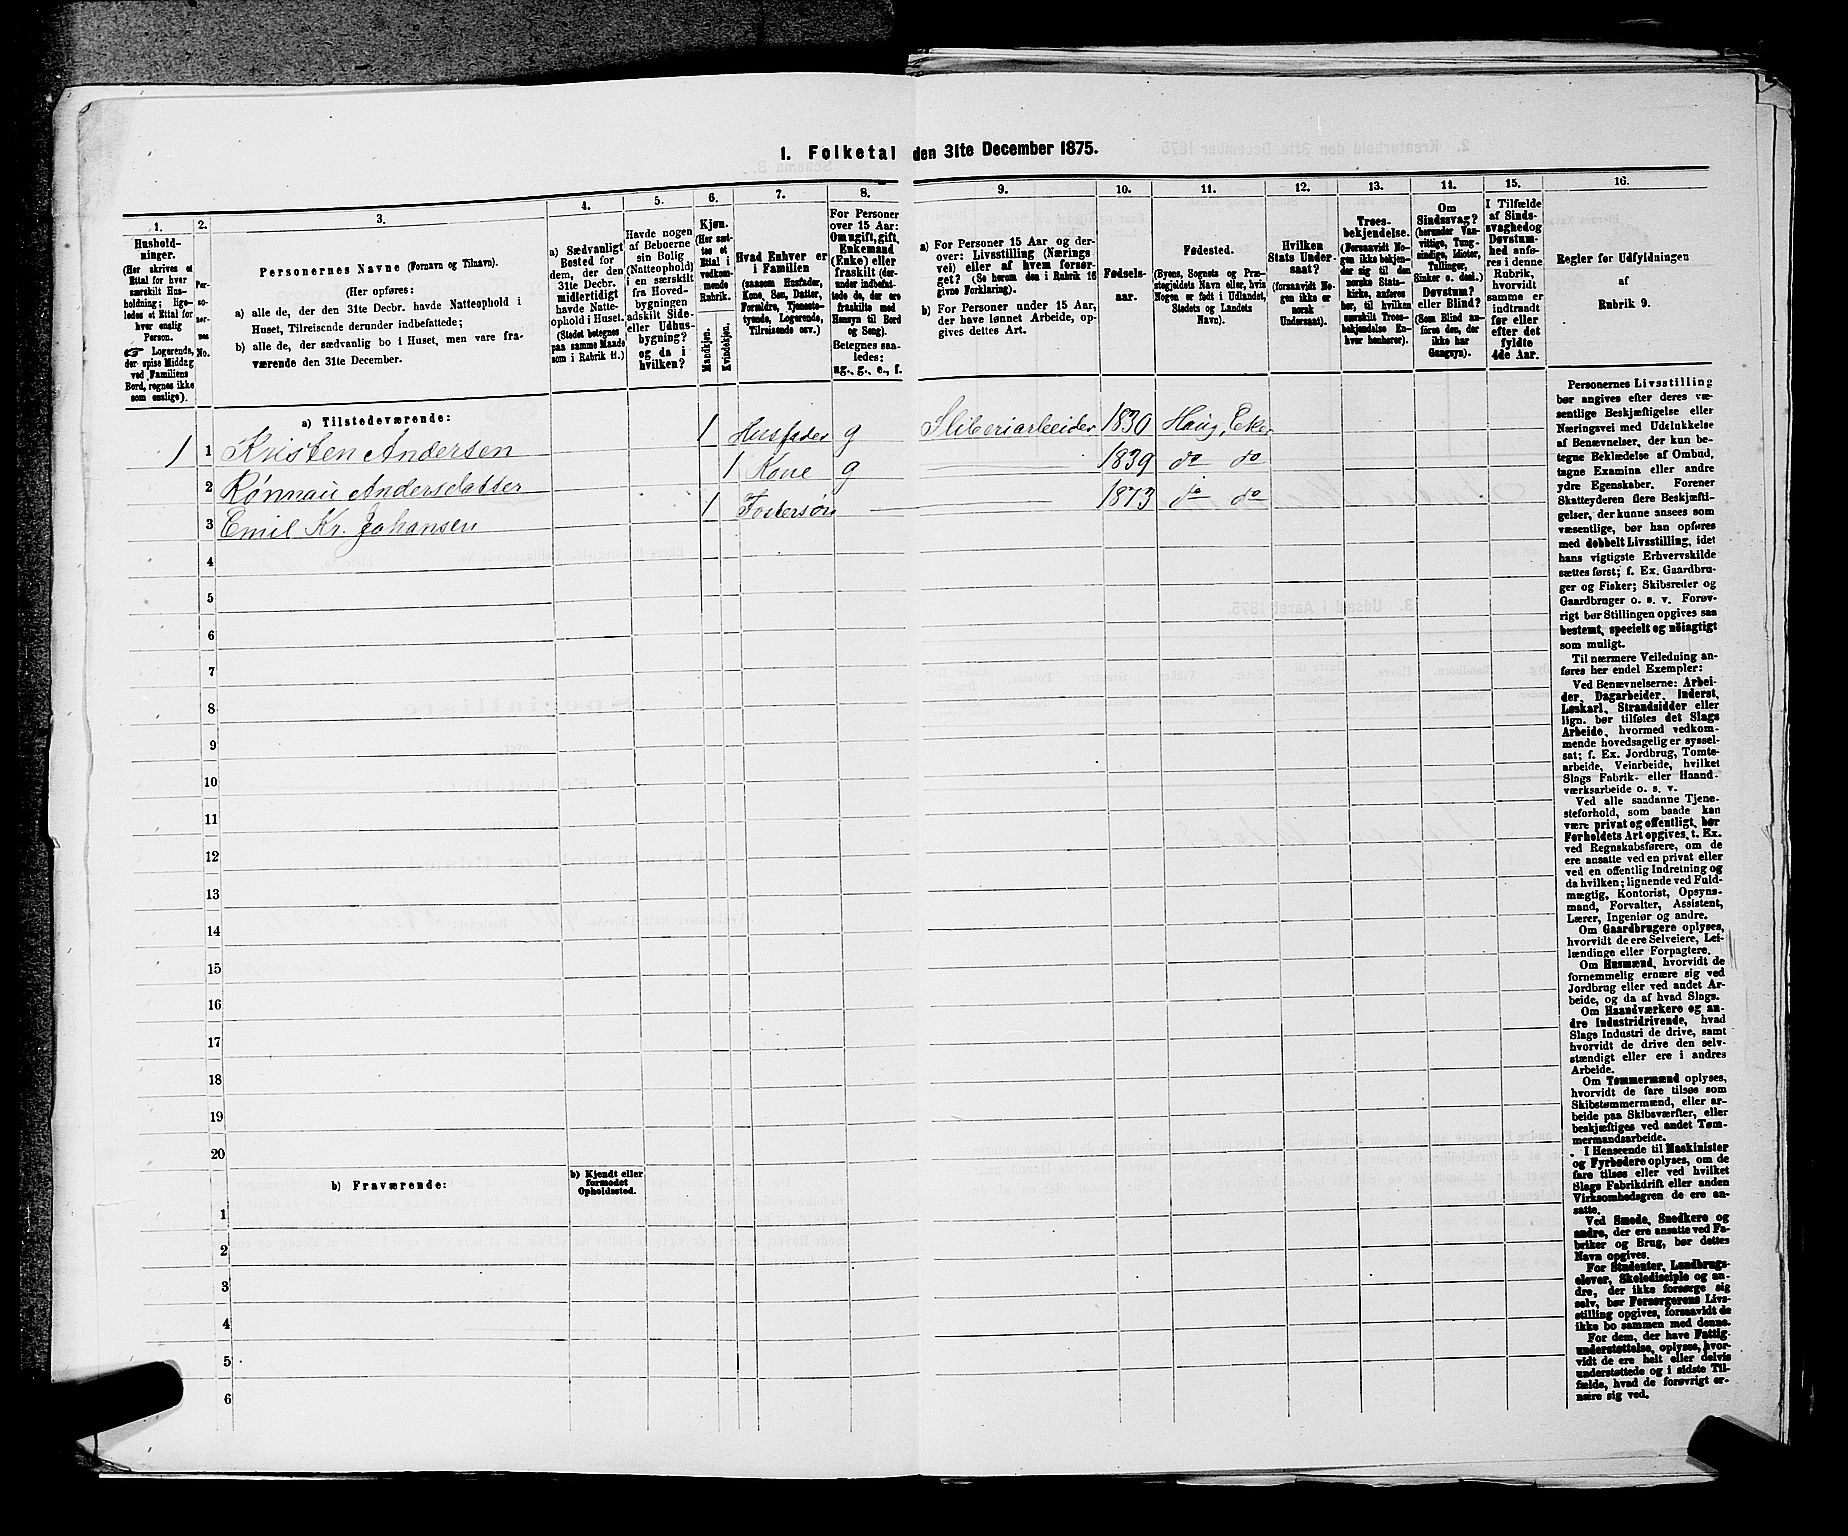 1. Folketal den 31te December 1875.
1.
Hushold-
ninger.
(Her skrives et
Ettal for hver
særskilt Hus-
holdning; lige-
ledes et Ettal for
hver enslig
Person.
☞ Logerende,
der spise Middag
ved Familiens
Bord, regnes ikke
som enslige).
2.
Per-
so-
ner-
nes
No.
3.
Personernes Navne (Fornavn og Tilnavn).
(Her opføres:
a) alle de, der den 31te Decbr. havde Natteophold i
Huset, Tilreisende derunder indbefattede;
b) alle de, der sædvanlig bo i Huset, men vare fra-
værende den 31te December.
4.
a) Sædvanligt
Bosted for
dem, der den
31te Decbr.
midlertidigt
havde Natte-
ophold i Huset.
(Stedet betegnes
paa samme Maade
som i Rubrik 11.)
5.
Havde nogen
af Beboerne
sin Bolig
(Natteophold)
i en særskilt
fra Hoved-
bygningen
adskilt Side-
eller Udhus-
bygning?
og da i
hvilken?
6.
Kjøn.
(Her sæt-
tes et
Ettal i
vedkom-
mende
Rubrik.
Mandkjøn.
Kvindekjøn.
7.
Hvad Enhver er
i Familien
(saasom Husfader,
Kone, Søn, Datter,
Forældre, Tjeneste-
tyende, Logerende,
Tilreisende osv.)
8.
For Personer
over 15 Aar:
Om ugift, gift,
Enkemand
(Enke) eller
fraskilt (der-
under indbefat-
tede de, der ere
fraskilte med
Hensyn til Bord
og Seng).
Betegnes saa-
ledes:
ug., g., e., f.
9.
a) For Personer 15 Aar og der-
over: Livsstilling (Nærings
vei) eller af hvem forsør-
get? (Se herom den i Rubrik 16
givne Forklaring).
b) For Personer under 15 Aar,
der have lønnet Arbeide, op-
gives dettes Art.
10.
Fødsels-
aar.
11.
Fødested.
(Byens, Sognets og Præ-
stegjeldets Navn eller, hvis
Nogen er født i Udlandet,
Stedets og Landets
Navn).
12.
Hvilken
Stats Under-
saat?
(forsaavidt No-
gen ikke er
norsk
Undersaat).
13.
Troes-
bekjendelse.
(Forsaavidt No-
gen ikke bekjen-
der sig til den
norske Stats-
kirke, anføres
her, til hvilken
særskilt Troes-
bekjendelse En-
hver henhører).
14.
Om
Sindssvag?
(herunder Van-
vittige, Tung-
sindige, Idioter,
Tullinger,
Sinker o. desl.)
Døvstum?
eller Blind?
(Som Blind an-
føres den, der
ikke har
Gangsyn).
15.
I Tilfælde
af Sinds-
svaghed og
Døvstum-
hed anfø-
res i denne
Rubrik,
hvorvidt
samme er
indtraadt
før eller
efter det
fyldte
4de Aar.
16.
Regler for Udfyldningen
af
Rubrik 9.
a) Tilstedeværende:
1 1 Kristen Andersen 1 Husfader g Sliberiarbeider 1830 Haug, Eker
2 Rønnau Andersdatter 1 Kone g 1839 do do
3 Emil Kr. Johansen 1 Fostersøn 1873 do do
4
5
6
7
8
9
10
11
12
13
14
15
16
17
18
19
20
b) Fraværende:
b) Kjendt eller
formodet
Opholdssted.
1
2
3
4
5
6
Personernes Livsstilling
bør angives efter deres væ-
sentlige Beskjæftigelse eller
Næringsvei med Udelukkelse
af Benævnelser, der kun be-
tegne Beklædelse af Ombud,
tagne Examina eller andre
ydre Egenskaber. Forener
Skatteyderen flere Beskjæfti-
gelser, der kunne ansees som
væsentlige, bør han opføres
med dobbelt Livsstilling, idet
hans vigtigste Erhvervskilde
sættes først; f. Ex. Gaardbru-
ger og Fisker; Skibsreder og
Gaardbruger o. s. v. Forøv-
rigt bør Stillingen opgives saa
bestemt, specielt og nøiagtigt
som muligt.
Til nærmere Veiledning an-
føres her endel Exempler:
Ved Benævnelserne: Arbei-
der, Dagarbeider, Inderst,
Løskarl, Strandsidder eller
lign. bør tilføies det Slags
Arbeide, hvormed vedkom-
mende hovedsagelig er syssel-
sat; f. Ex. Jordbrug, Tomte-
arbeide, Veiarbeide, hvilket
Slags Fabrik- eller Haand-
værksarbeide o. s. v.
Ved alle saadanne Tjene-
steforhold, som baade kan
være privat og offentligt, bør
Forholdets Art opgives, t. Ex.
ved Regnskabsførere, om de
ere ansatte ved en privat eller
ved en offentlig Indretning og
da hvilken; lignende ved Fuld-
mægtig, Kontorist, Opsyns-
mand, Forvalter, Assistent,
Lærer, Ingeniør og andre.
Om Gaardbrugere oplyses,
hvorvidt de ere Selveiere, Lei-
lændinge eller Forpagtere.
Om Husmænd, hvorvidt de
fornemmelig ernære sig ved
Jordbrug eller ved andet Ar-
beide, og da af hvad Slags.
Om Haandværkere og an-
dre Industridrivende, hvad
Slags Industri de drive, samt
hvorvidt de drive den selv-
stændigt eller ere i andres
Arbeide.
Om Tømmermænd oplyses,
hvorvidt de fare tilsøs som
Skibstømmermænd, eller ar-
beide paa Skibsværfter, eller
beskjæftiges ved andet Tøm-
mermandsarbeide.
I Henseende til Maskinister
og Fyrbødere oplyses, om de
fare tilsøs eller ved hvilket
Slags Fabrikdrift eller anden
Virksomhedsgren de ere an-
satte.
Ved Smede, Snedkere og
andre, der ere ansatte ved Fa-
briker og Brug, bør dettes
Navn opgives.
For Studenter, Landbrugs-
elever, Skoledisciple og an-
dre, der ikke forsørge sig
selv, bør Forsørgerens Livs-
stilling opgives, forsaavidt de
ikke bo sammen med denne.
For dem, der have Fattig-
understøttelse, oplyses, hvor-
vidt de ere helt eller delvis
understøttede og i sidste Til-
fælde, hvad de forøvrigt er-
nære sig ved.